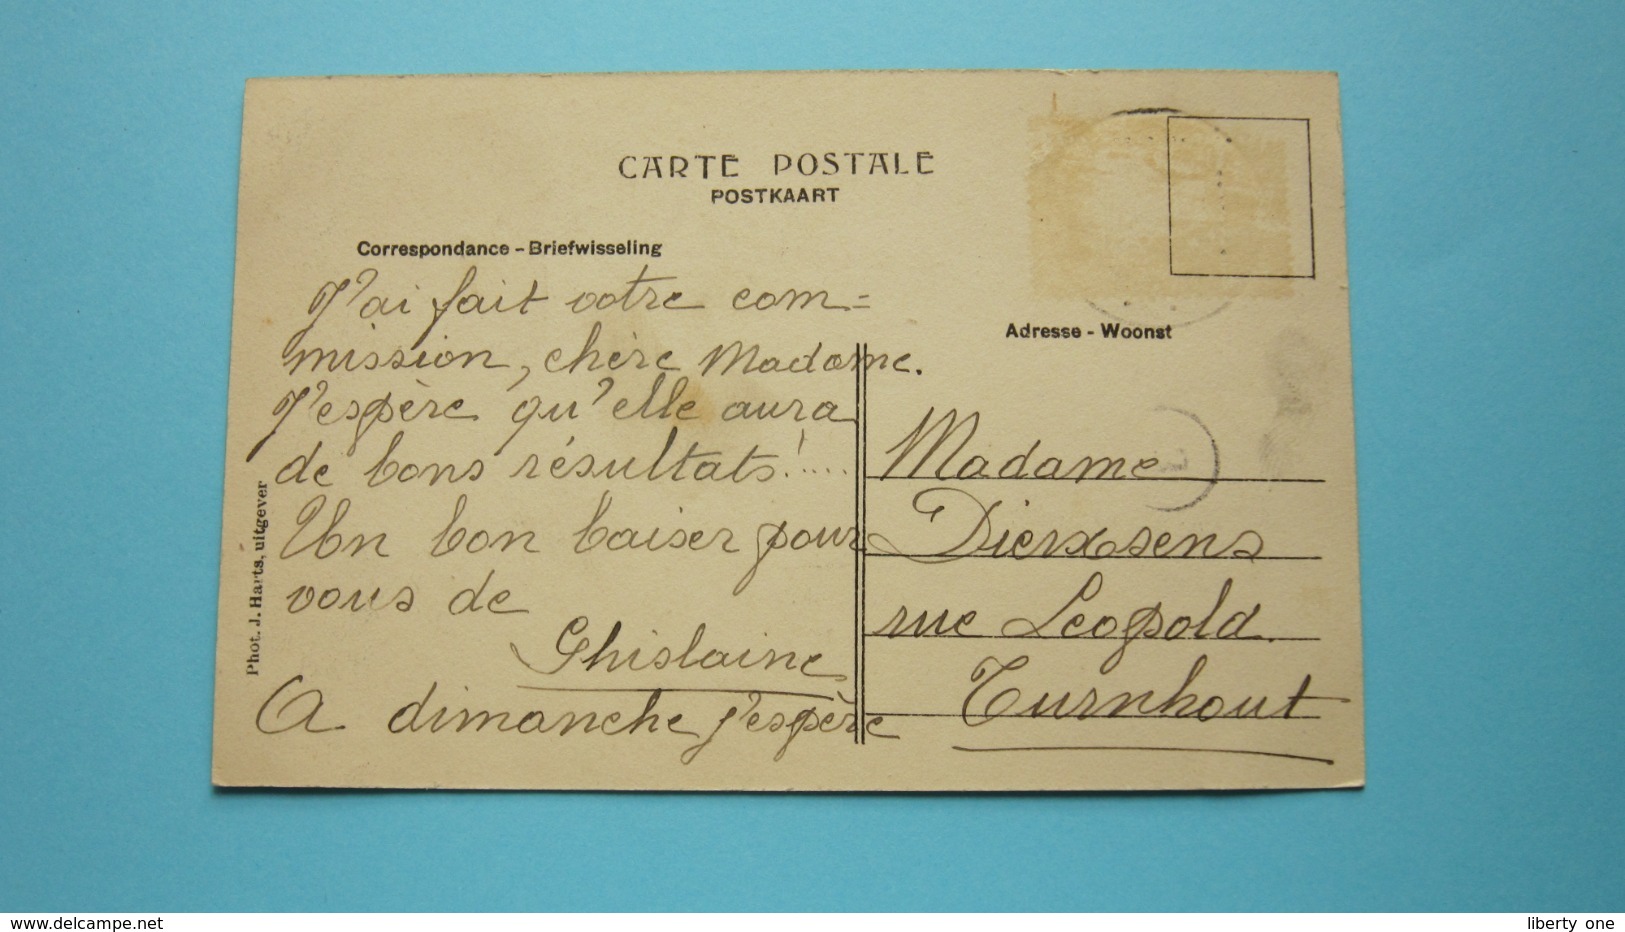 CARTE POSTALE
POSTKAART
Correspondance - Briefwisseling
J'ai fait votre com=
mission, chère Madame.
J'espère qu'elle aura
de bons résultats!.....
Un bon baiser pour
vous de
Ghislaine
A dimanche j'espère
Phot. J. Harts, uitgever
Adresse - Woonst
Madame
Dierxsens
rue Leopold.
Turnhout
www.delcampe.net
liberty one